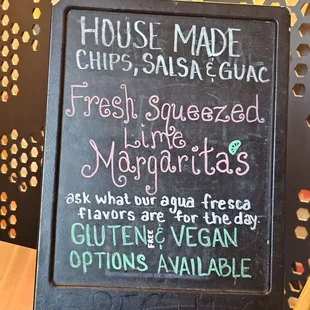 HOUSE MADE
CHIPS, SALSA & GUAC
Fresh squeezed
Lime
Margarita's
ask what our agua fresca
flavors are for the day.
GLUTEN FREE & VEGAN
OPTIONS AVAILABLE